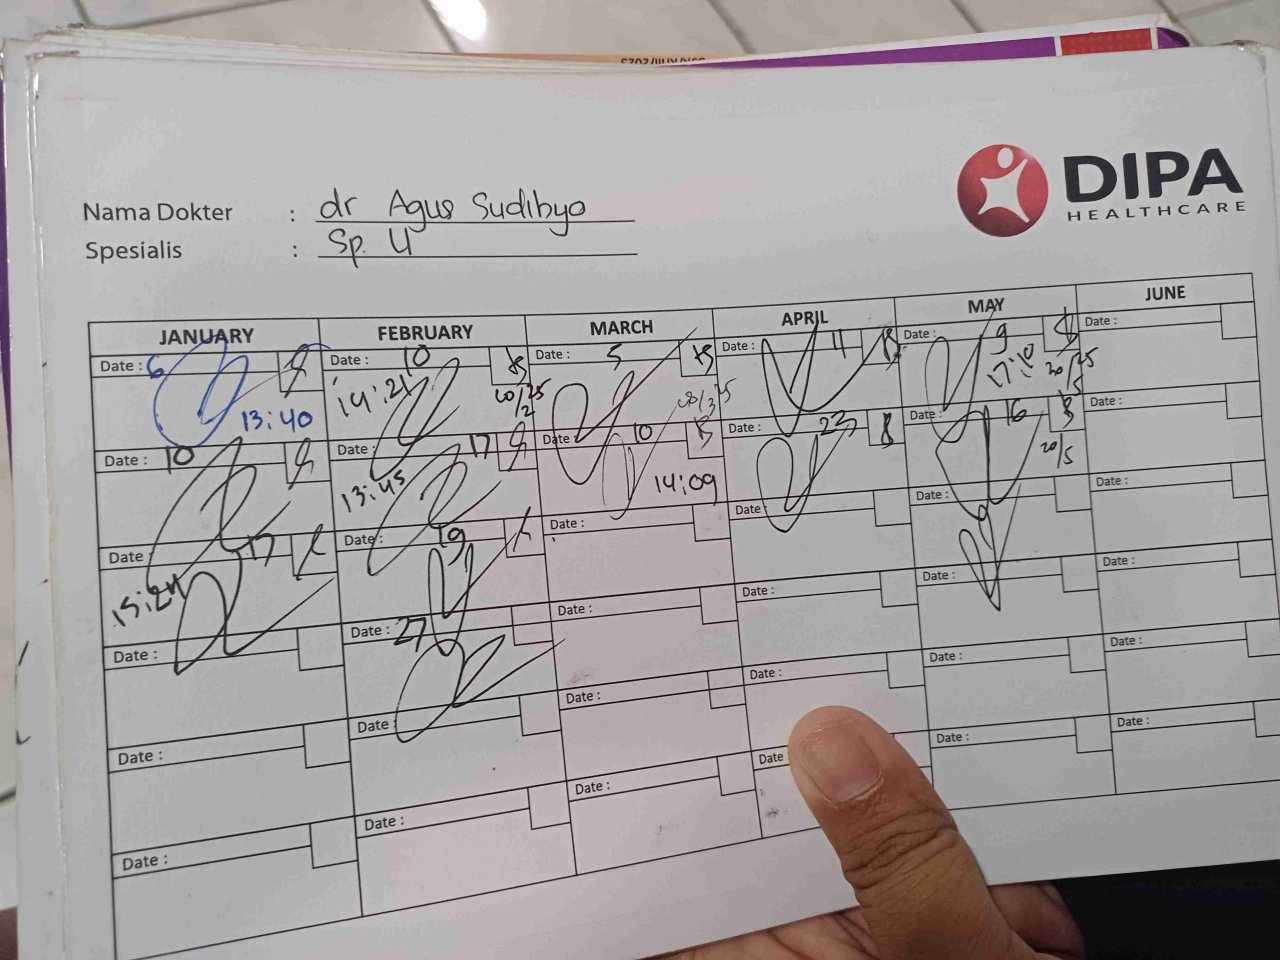 DIPA
HEALTHCARE
Nama Dokter : dr Agus Sudibyo
Spesialis : Sp. U
JANUARY FEBRUARY MARCH APRIL MAY JUNE
Date : 6 Date : 10 Date : 5 Date : 11 Date : 9 Date :
13:40 14:21 17:10 20/5
Date : 10 Date : 17 Date : 10 Date : 22 Date : 16 Date :
13:45 14:09 20/5
Date : 17 Date : 19 Date : Date : Date : Date :
Date : Date : 27 Date : Date : Date : Date :
Date : Date : Date : Date : Date : Date :
Date : Date : Date : Date Date : Date :